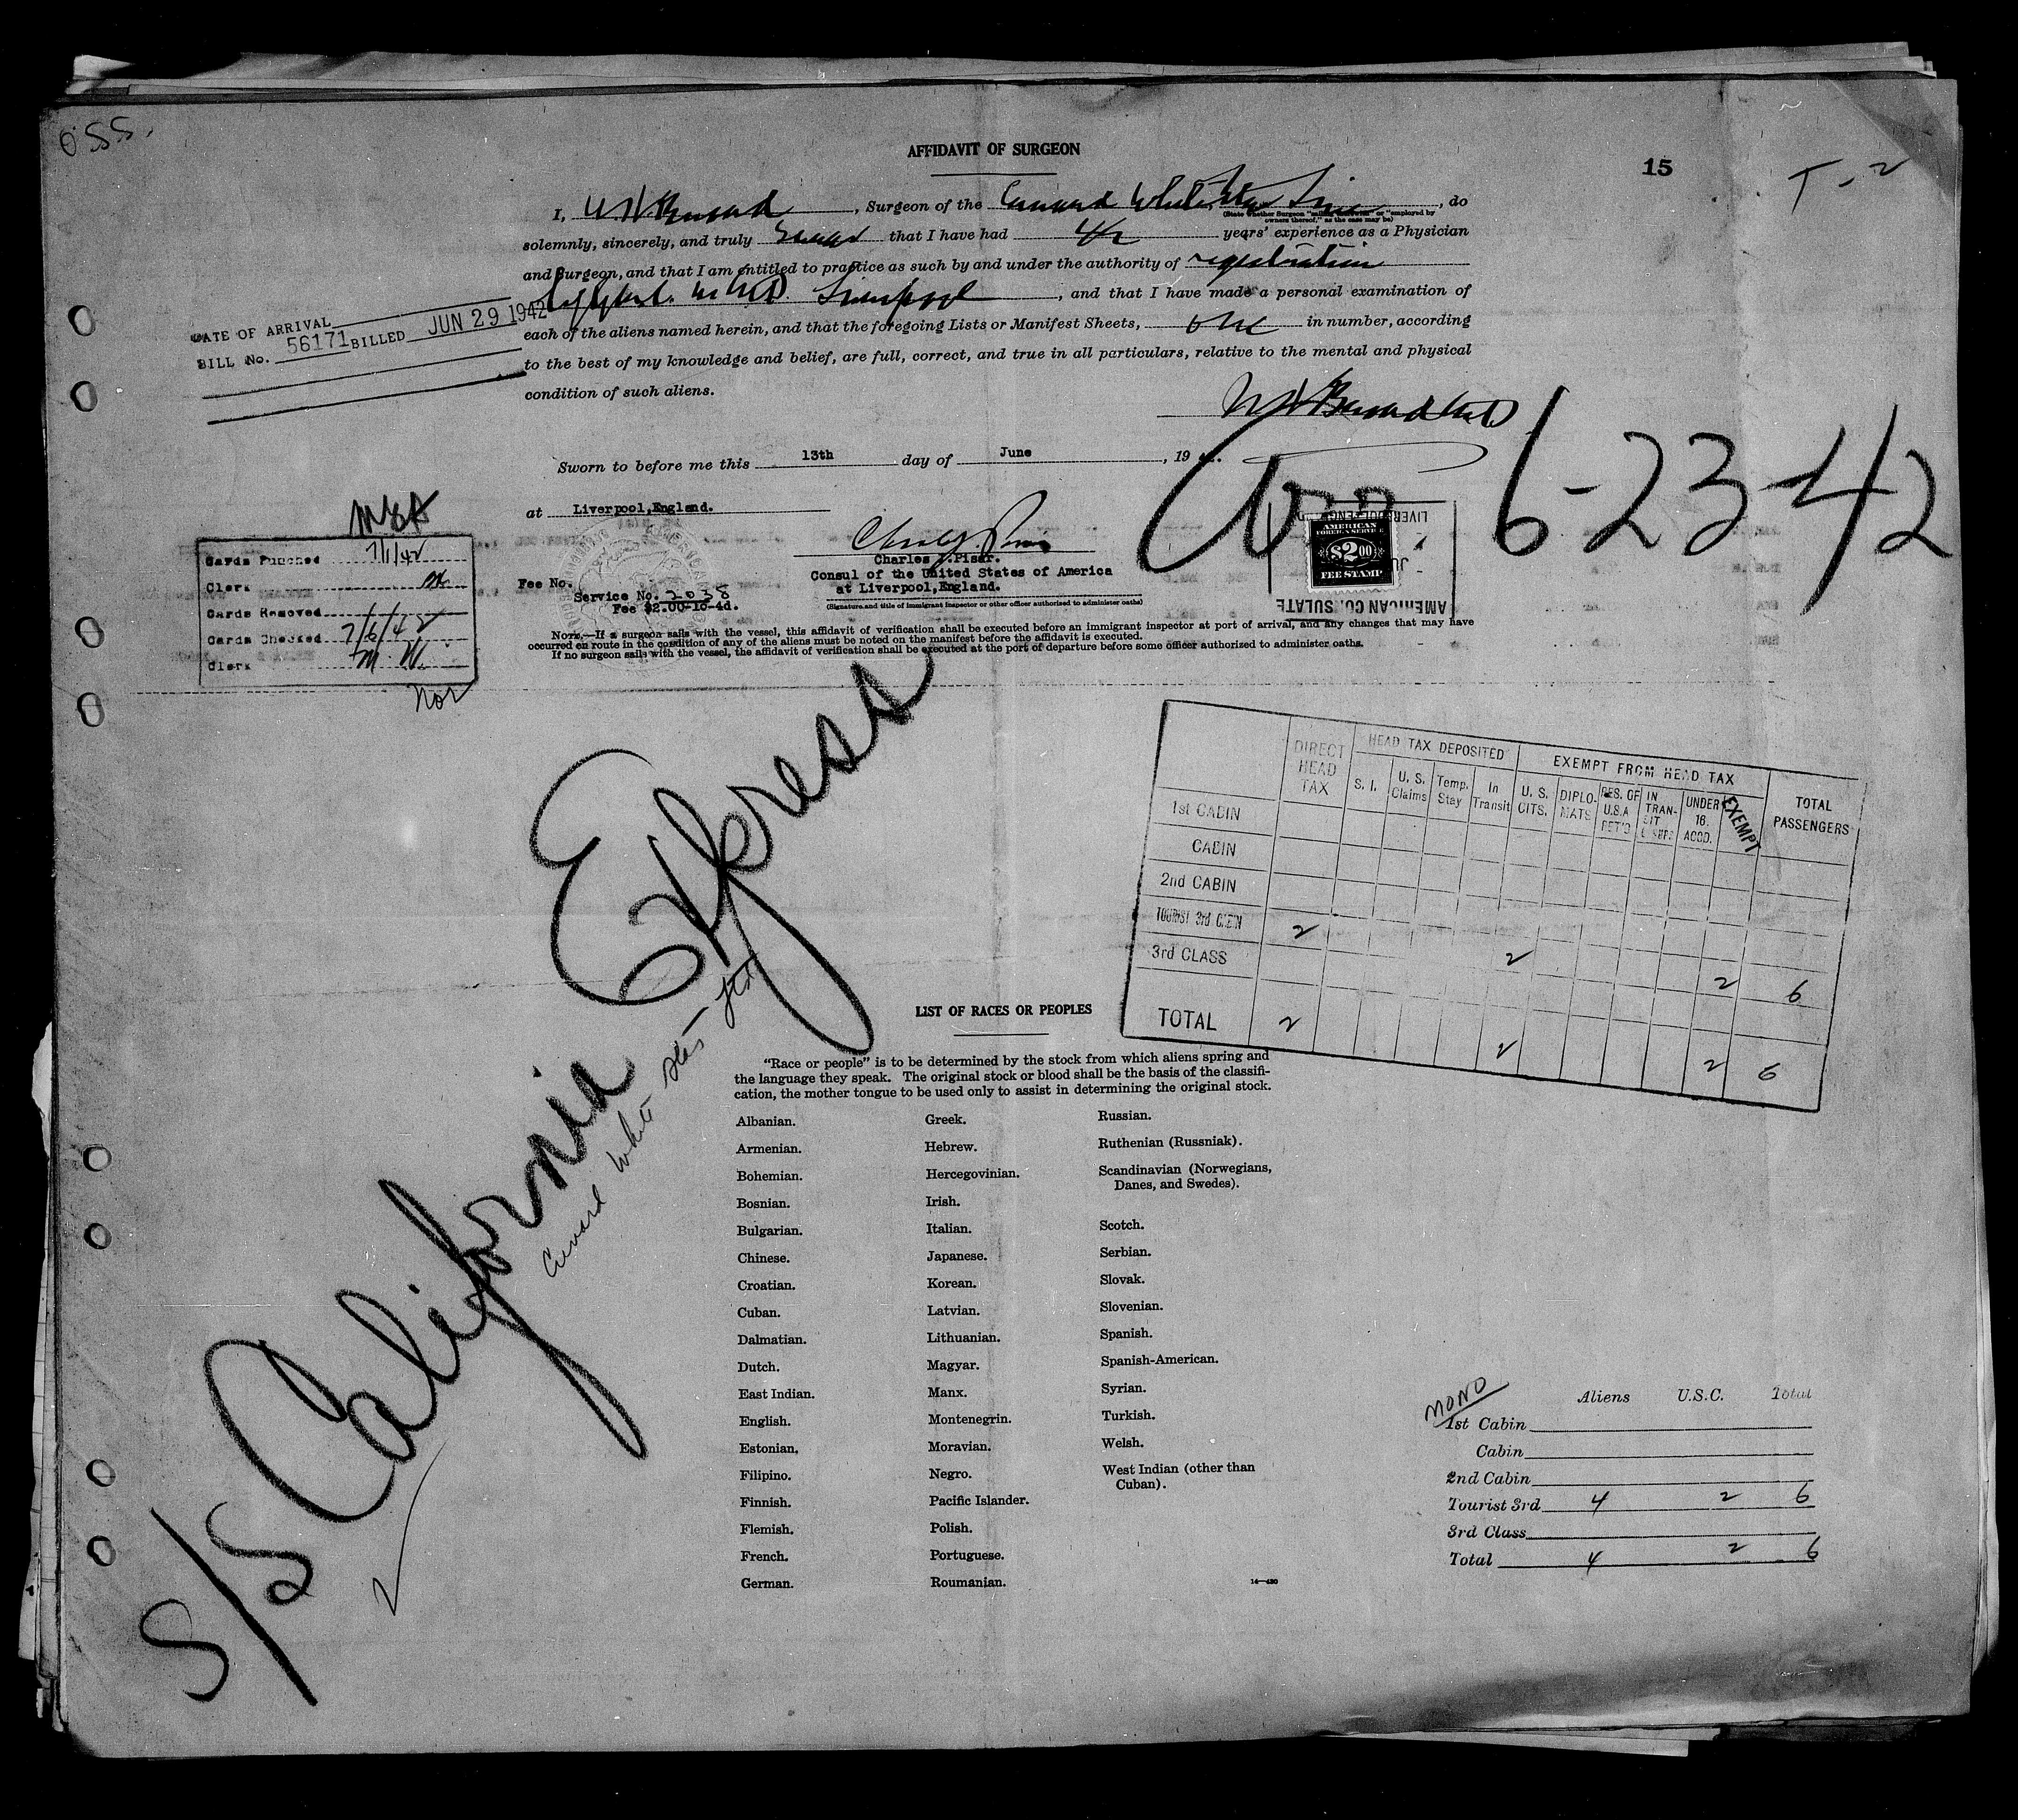 O.S.S.
AFFIDAVIT OF SURGEON
15
T-2
I, , Surgeon of the Cunard White Star Line, do
(State whether Surgeon "sailing therewith" or "employed by
owners thereof," as the case may be)
solemnly, sincerely, and truly swear that I have had 4½ years' experience as a Physician
and Surgeon, and that I am entitled to practice as such by and under the authority of registration
Liverpool, and that I have made a personal examination of
DATE OF ARRIVAL
BILL No. 56171 BILLED JUN 29 1942
each of the aliens named herein, and that the foregoing Lists or Manifest Sheets, one in number, according
to the best of my knowledge and belief, are full, correct, and true in all particulars, relative to the mental and physical
condition of such aliens.
Sworn to before me this 13th day of June, 19
Arr 6-23-42
at Liverpool,England.
Charles J.Pisar.
Consul of the United States of America
at Liverpool,England.
(Signature and title of immigrant inspector or other officer authorized to administer oaths)
Fee No.
Service No. 2038
Fee $2.00-10-4d.
AMERICAN
FOREIGN SERVICE
$2.00
FEE STAMP
AMERICAN CONSULATE
LIVERPOOL, ENG
Cards Punched 7/1/42
Clerk
Cards Removed
Cards Checked 7/6/42
Clerk M.W.
Nor
NOTE.—If a surgeon sails with the vessel, this affidavit of verification shall be executed before an immigrant inspector at port of arrival, and any changes that may have
occurred en route in the condition of any of the aliens must be noted on the manifest before the affidavit is executed.
If no surgeon sails with the vessel, the affidavit of verification shall be executed at the port of departure before some officer authorized to administer oaths.
S/S California Express
Cunard White Star
DIRECT HEAD TAX
HEAD TAX DEPOSITED
EXEMPT FROM HEAD TAX
TOTAL PASSENGERS
S. I. U. S. Claims Temp. Stay In Transit U. S. CITS. DIPLOMATS RES. OF U.S.A. RET'G IN TRANSIT UNDER 16 ACCD. EXEMPT
1st CABIN
CABIN
2nd CABIN
TOURIST 3rd CABIN 2 2 2 6
3rd CLASS
TOTAL 2 2 2 6
LIST OF RACES OR PEOPLES
"Race or people" is to be determined by the stock from which aliens spring and
the language they speak. The original stock or blood shall be the basis of the classifi-
cation, the mother tongue to be used only to assist in determining the original stock.
Albanian. Greek. Russian.
Armenian. Hebrew. Ruthenian (Russniak).
Bohemian. Hercegovinian. Scandinavian (Norwegians,
Danes, and Swedes).
Bosnian. Irish.
Bulgarian. Italian. Scotch.
Chinese. Japanese. Serbian.
Croatian. Korean. Slovak.
Cuban. Latvian. Slovenian.
Dalmatian. Lithuanian. Spanish.
Dutch. Magyar. Spanish-American.
East Indian. Manx. Syrian.
English. Montenegrin. Turkish.
Estonian. Moravian. Welsh.
Filipino. Negro. West Indian (other than
Cuban).
Finnish. Pacific Islander.
Flemish. Polish.
French. Portuguese.
German. Roumanian.
14—430
MONO
Aliens U.S.C. Total
1st Cabin
Cabin
2nd Cabin
Tourist 3rd 4 2 6
3rd Class
Total 4 2 6